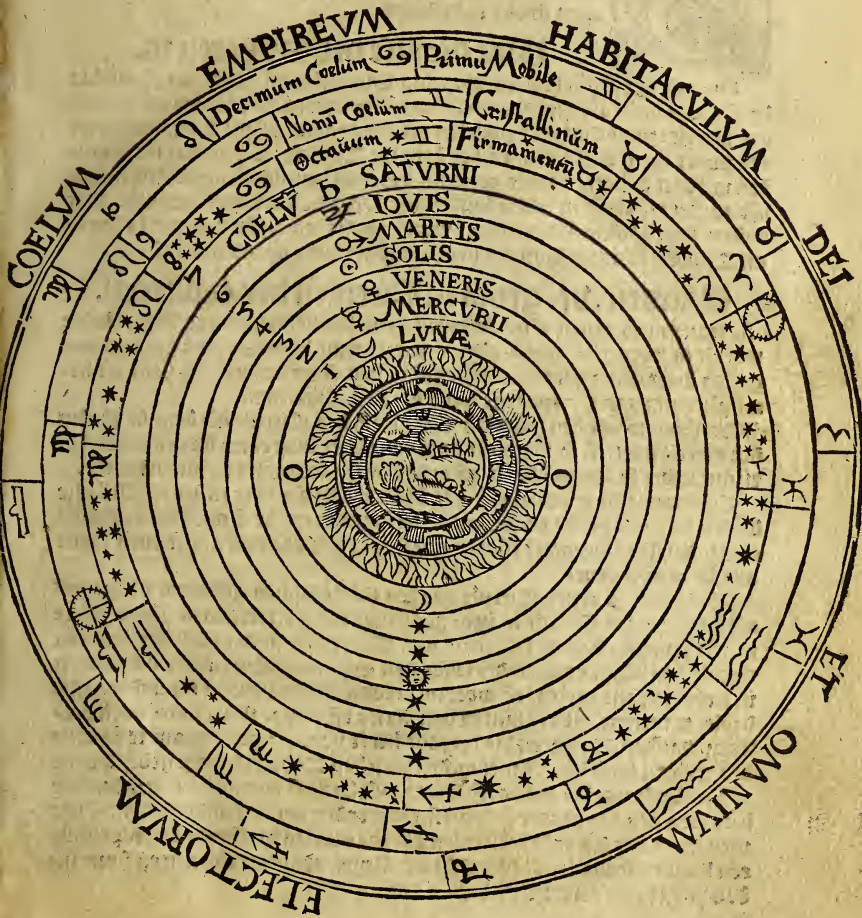 COELVM EMPIREVM HABITACVLVM DEI ET OMNIVM ELECTORVM
♋ Decimum Coelum ♋ Primū Mobile ♊
Nonū Coelum ♊ Cristallinum ♉
Octauum ♊ Firmamentū ♉
COELV̄ ♄ SATVRNI
♃ IOVIS
♂ MARTIS
☉ SOLIS
♀ VENERIS
☿ MERCVRII
☽ LVNÆ
10
9
8
7
6
5
4
3
2
1